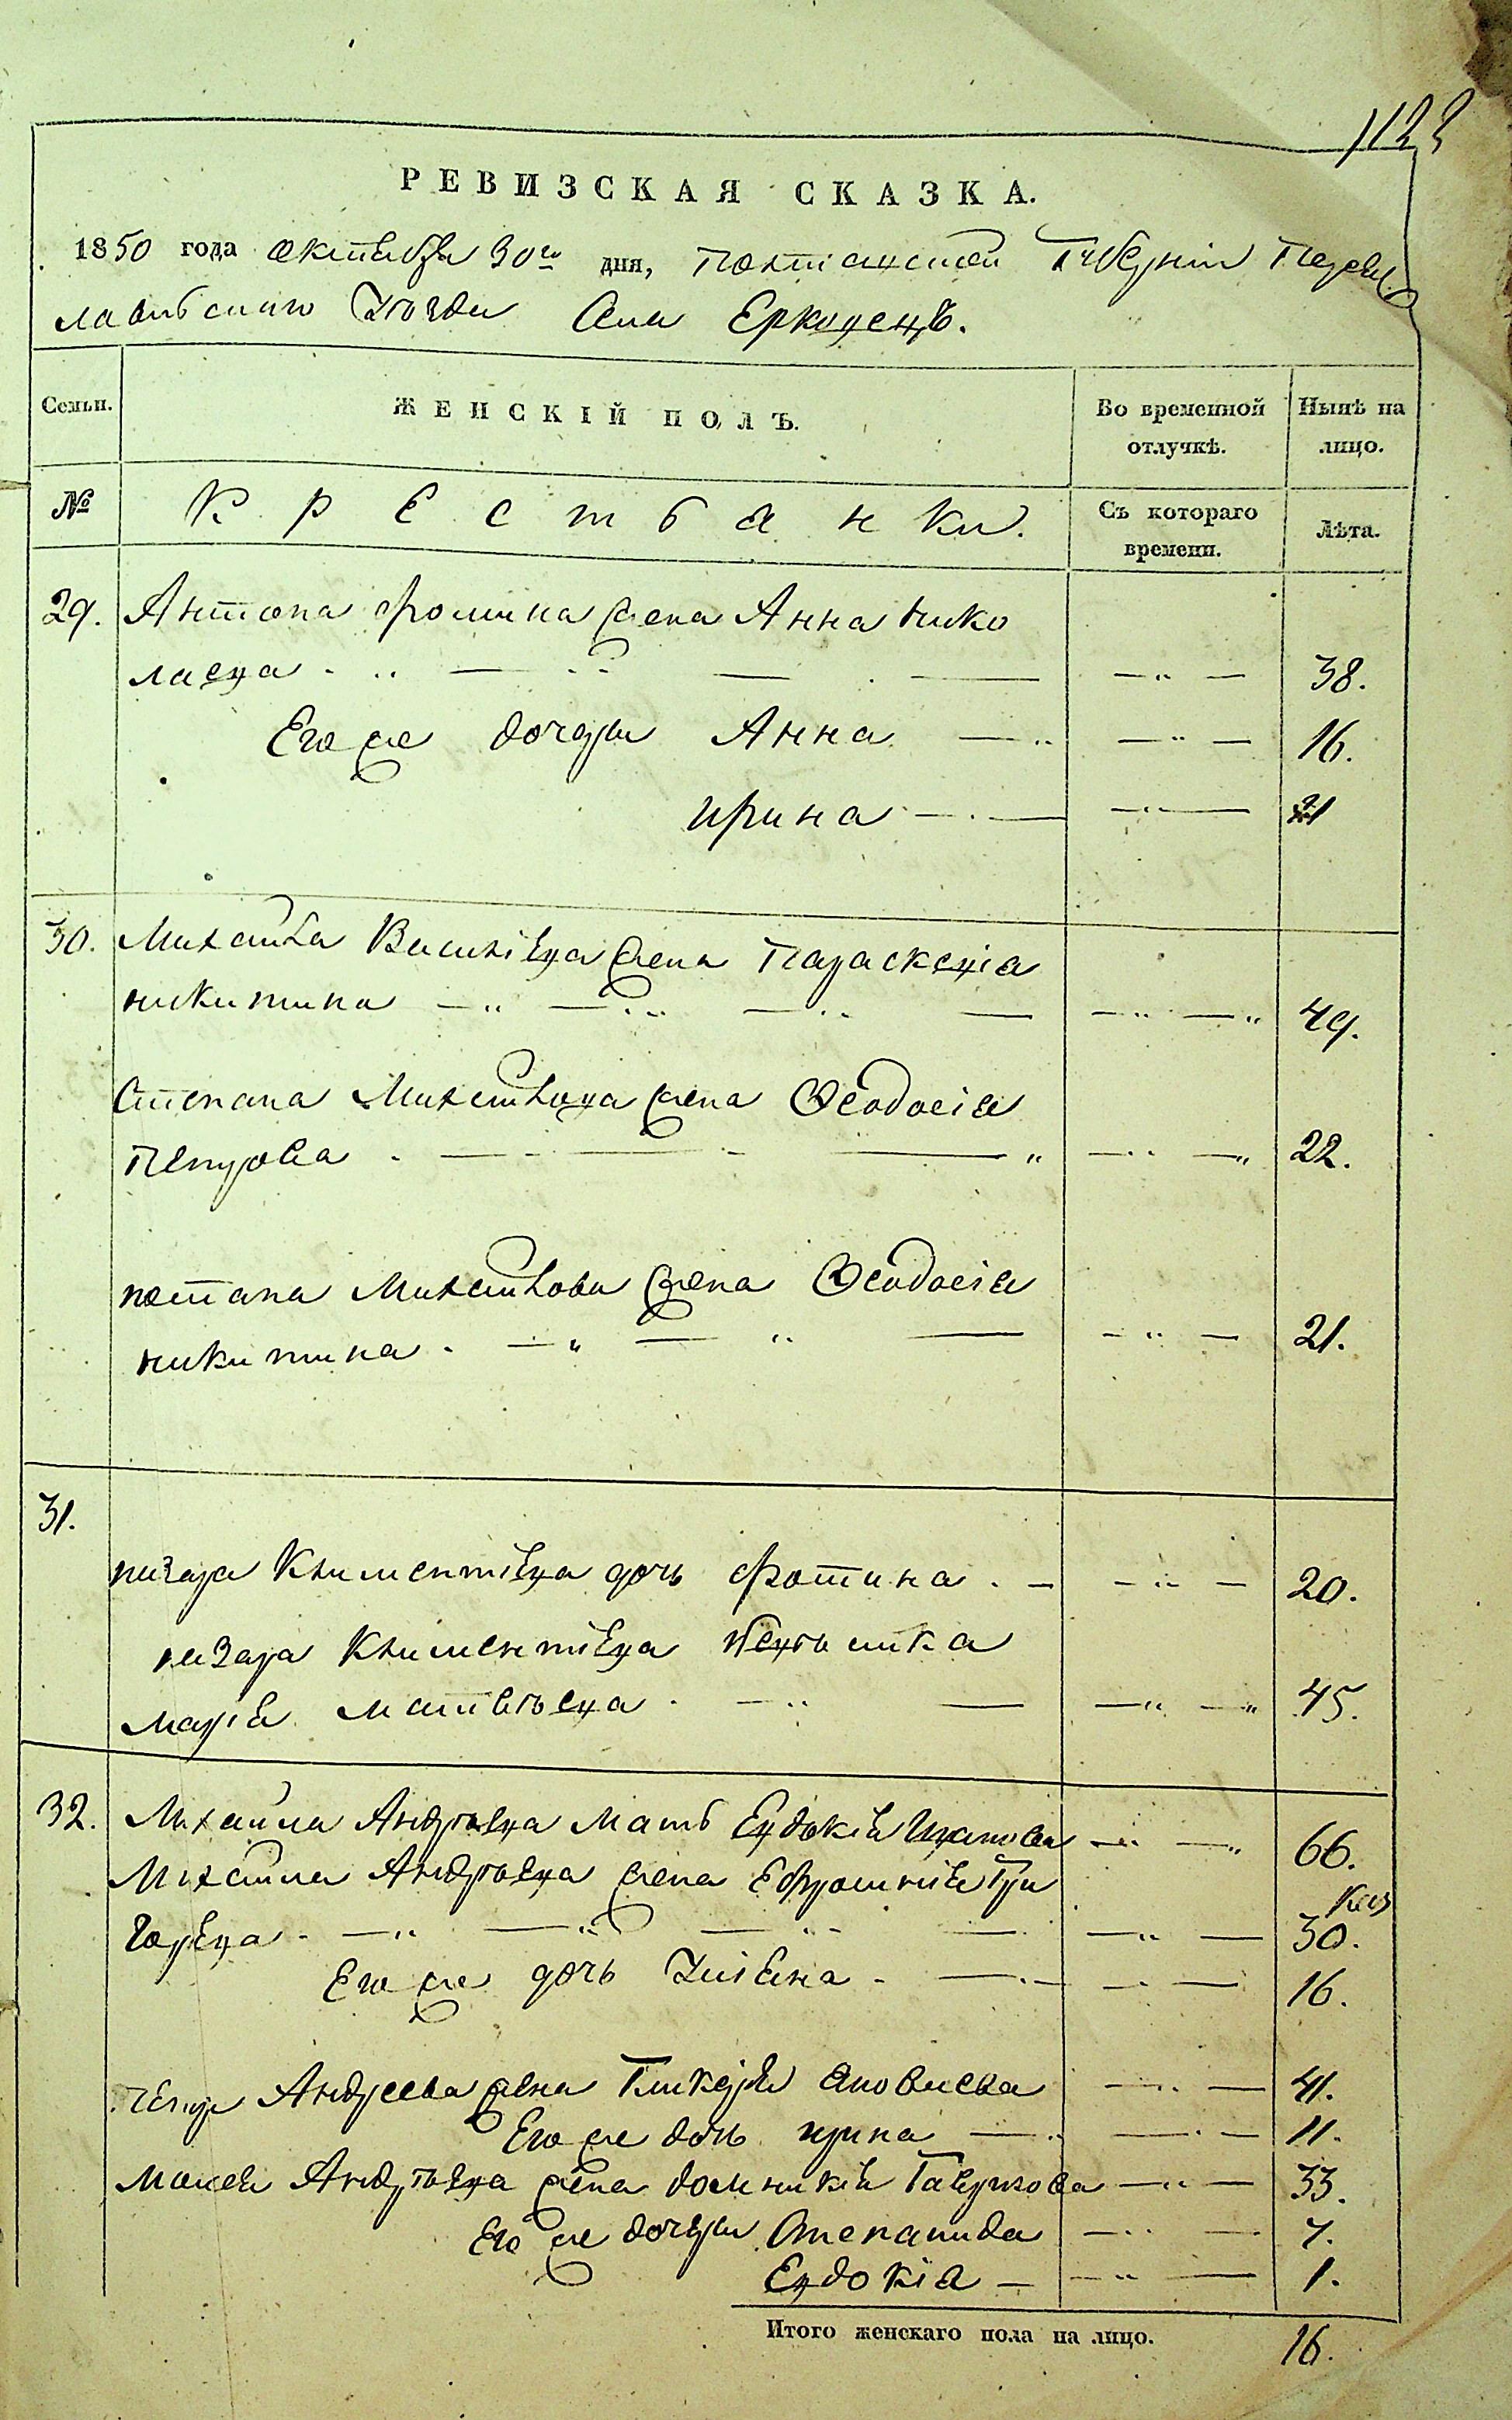 1123
РЕВИЗСКАЯ СКАЗКА.
1850 года октября 30го дня, Полтавской Губерніи Перея
славского Уезда Села Ерковецъ.
Семьи. ЖЕНСКІЙ ПОЛЪ. Во временной отлучкѣ. Нынѣ на лицо.
№ Крестьянки. Съ котораго времени. Лѣта.
29. Антона Фомина жена Анна Нико
лаева 38.
Его же дочери Анна 16.
Ирина
30. Михайла Василіева жена Параскевіа
Никитина 49.
Степана Михайлова жена Феодосіа
Петрова 22.
Потапа Михайлова жена Феодосіа
Никитина 21.
31.
Назара Климентіева дочь Фотина 20.
Назара Климентіева невѣстка
Маріа Матвѣева 45.
32. Михайла Андрѣева Мать Евдокіа Иванова 66.
Михайла Андрѣева жена Ефросиніа Гри
горіева 30.
Его же дочь Уліана 16.
Петра Андреева жена Гликеріа 41.
Его же дочь Ирина 11.
Моисея Андрѣева жена Домникіа Гаврилова 33.
Его же дочери Степанида 7.
Евдокіа 1.
Итого женскаго пола на лицо. 16.